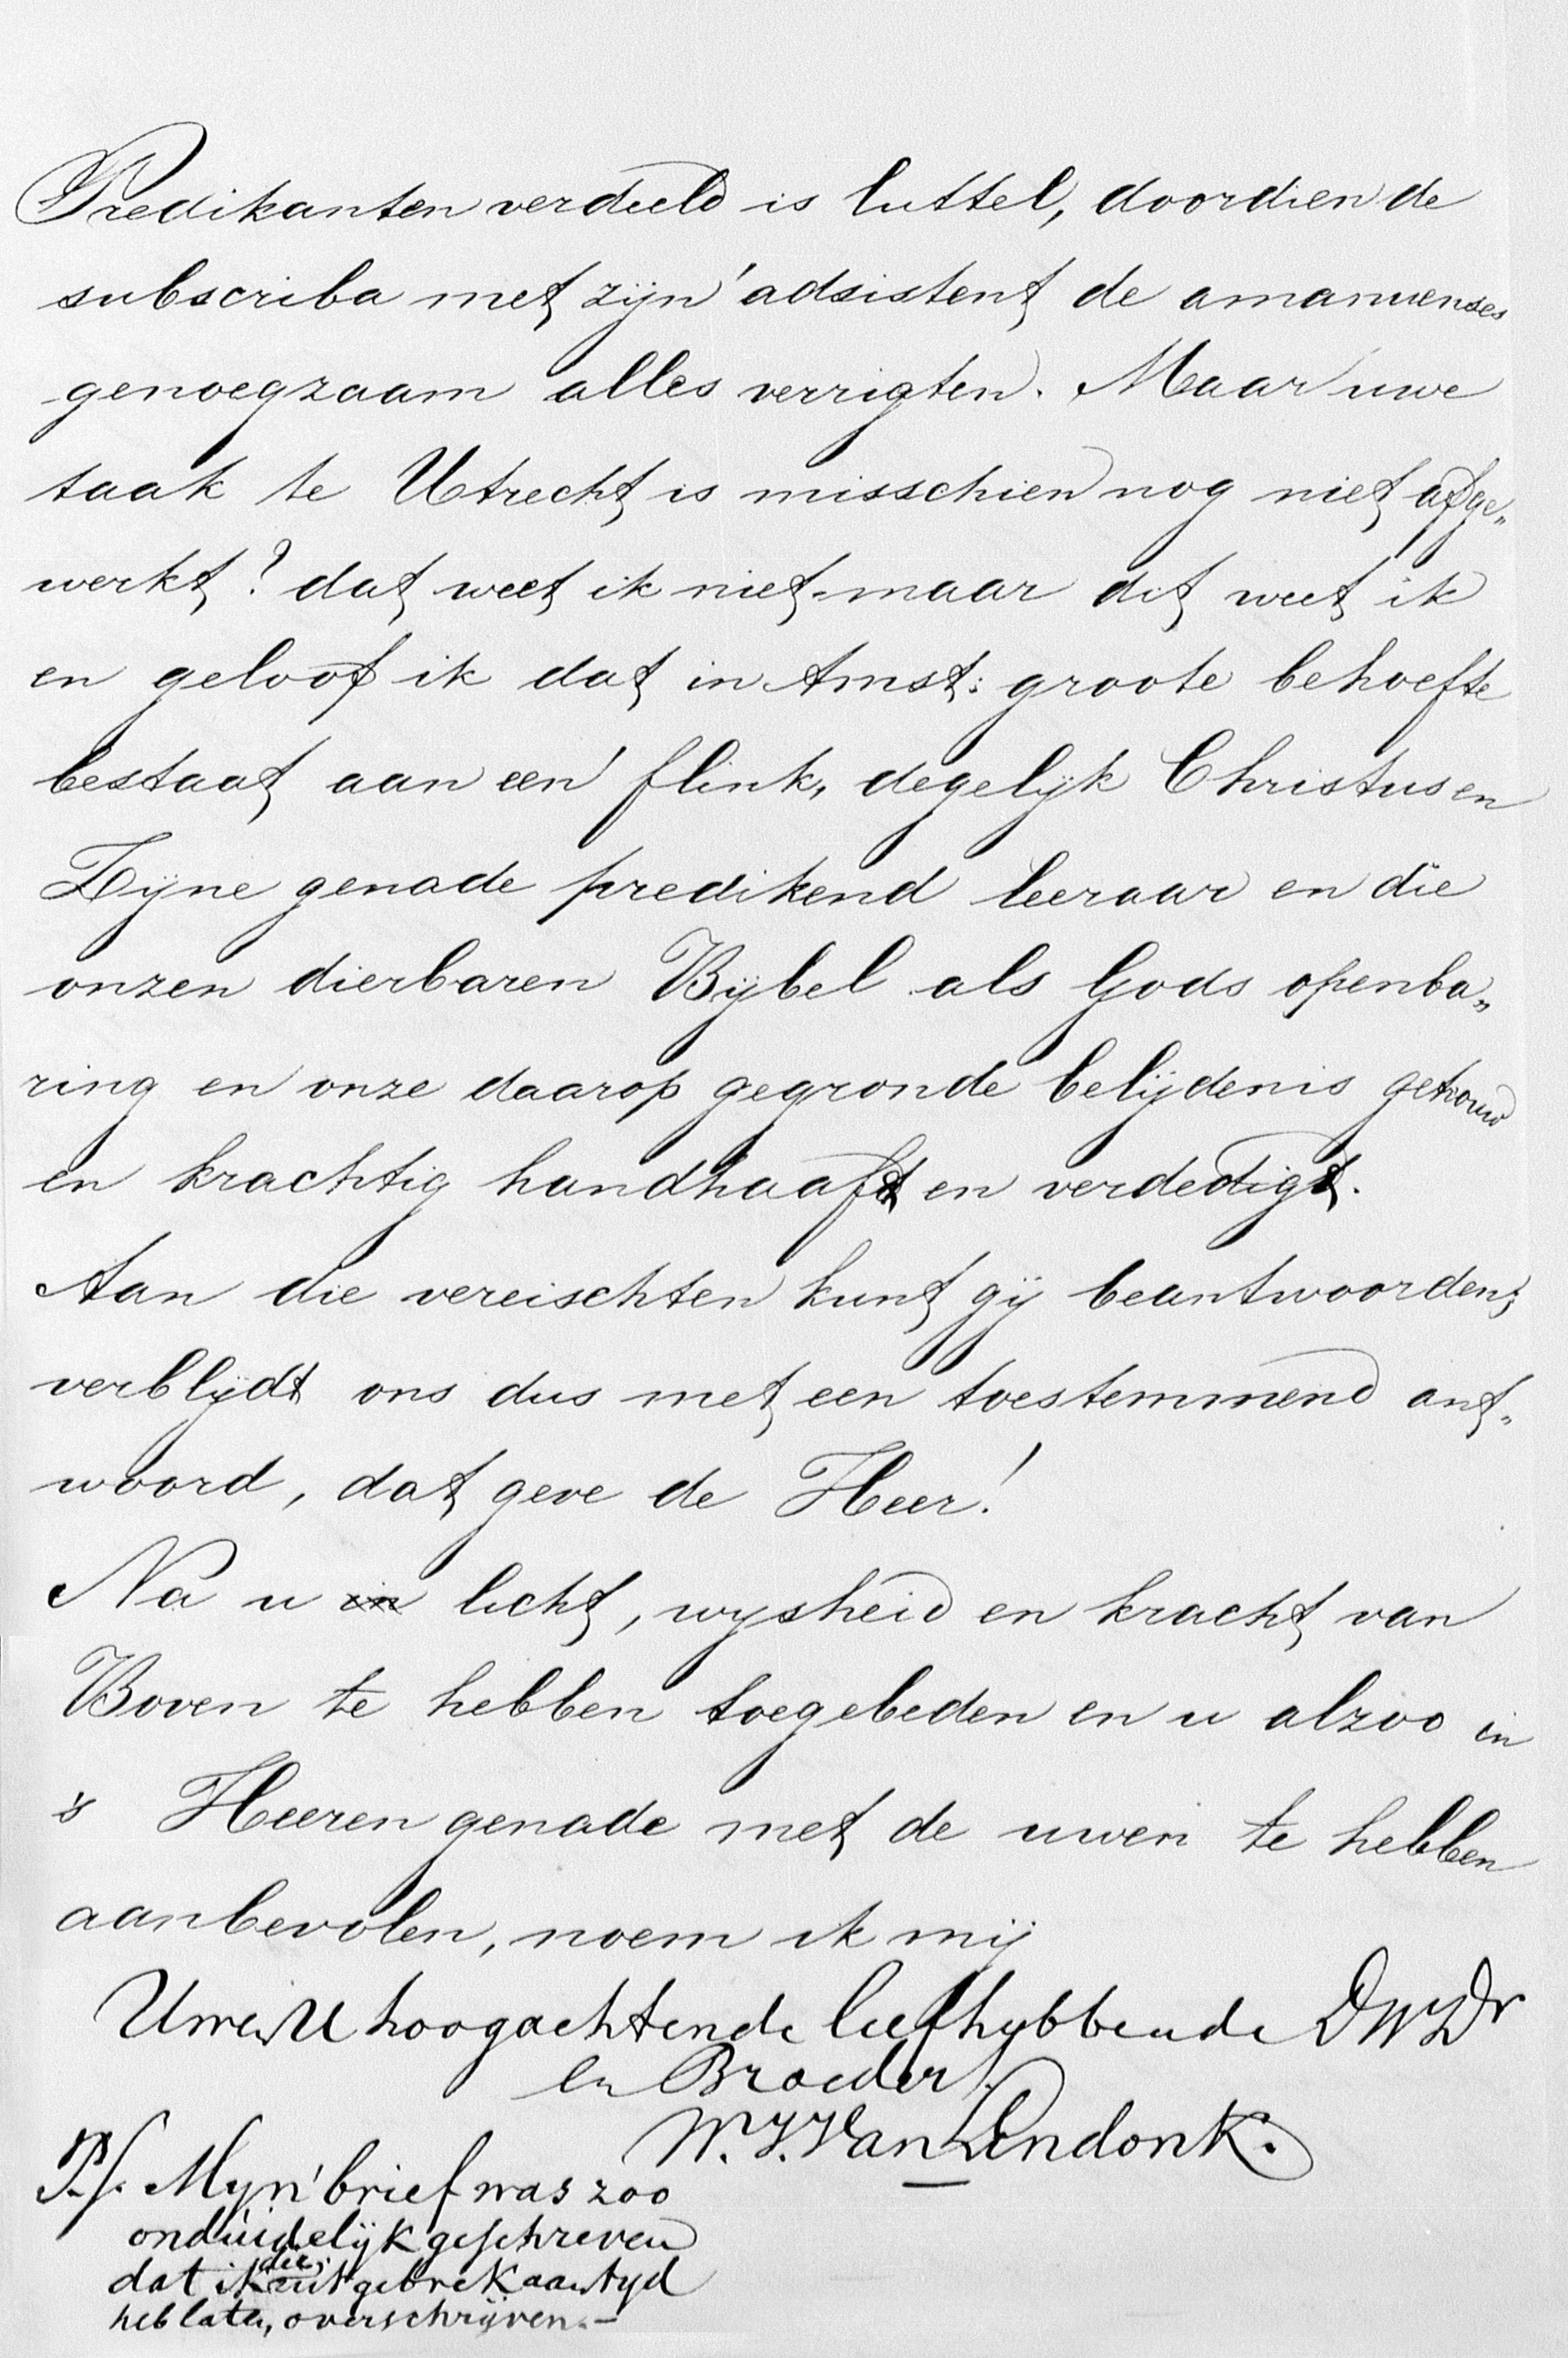 Predikanten verdeeld is luttel, doordien de
subscriba met zijn' adsistent de amanuenses
genoegzaam alles verrigten. Maar uwe
taak te Utrecht is misschien nog niet afge„
werkt? dat weet ik niet - maar dit weet ik
en geloof ik dat in Amst: groote behoefte
bestaat aan een' flink, degelijk Christus en
Zijne genade predikend leeraar en die
onzen dierbaren Bijbel als Gods openba„
ring en onze daarop gegronde belijdenis getrouw
en krachtig handhaaft en verdedigt.
Aan die vereischten kunt gij beantwoorden;
verblijdt ons dus met een toestemmend ant„
woord, dat geve de Heer!
Na u in licht, wijsheid en kracht van
Boven te hebben toegebeden en u alzoo in
's Heeren genade met de uwen te hebben
aanbevolen, noem ik mij
Uwe U hoogachtende liefhebbende DWDr
en Broeder
W. J. Van Lindonk.
P.S. Myn' brief was zoo
onduidelijk geschreven
dat ik die; uit gebrek aan tyd
heb laten overschrijven. -